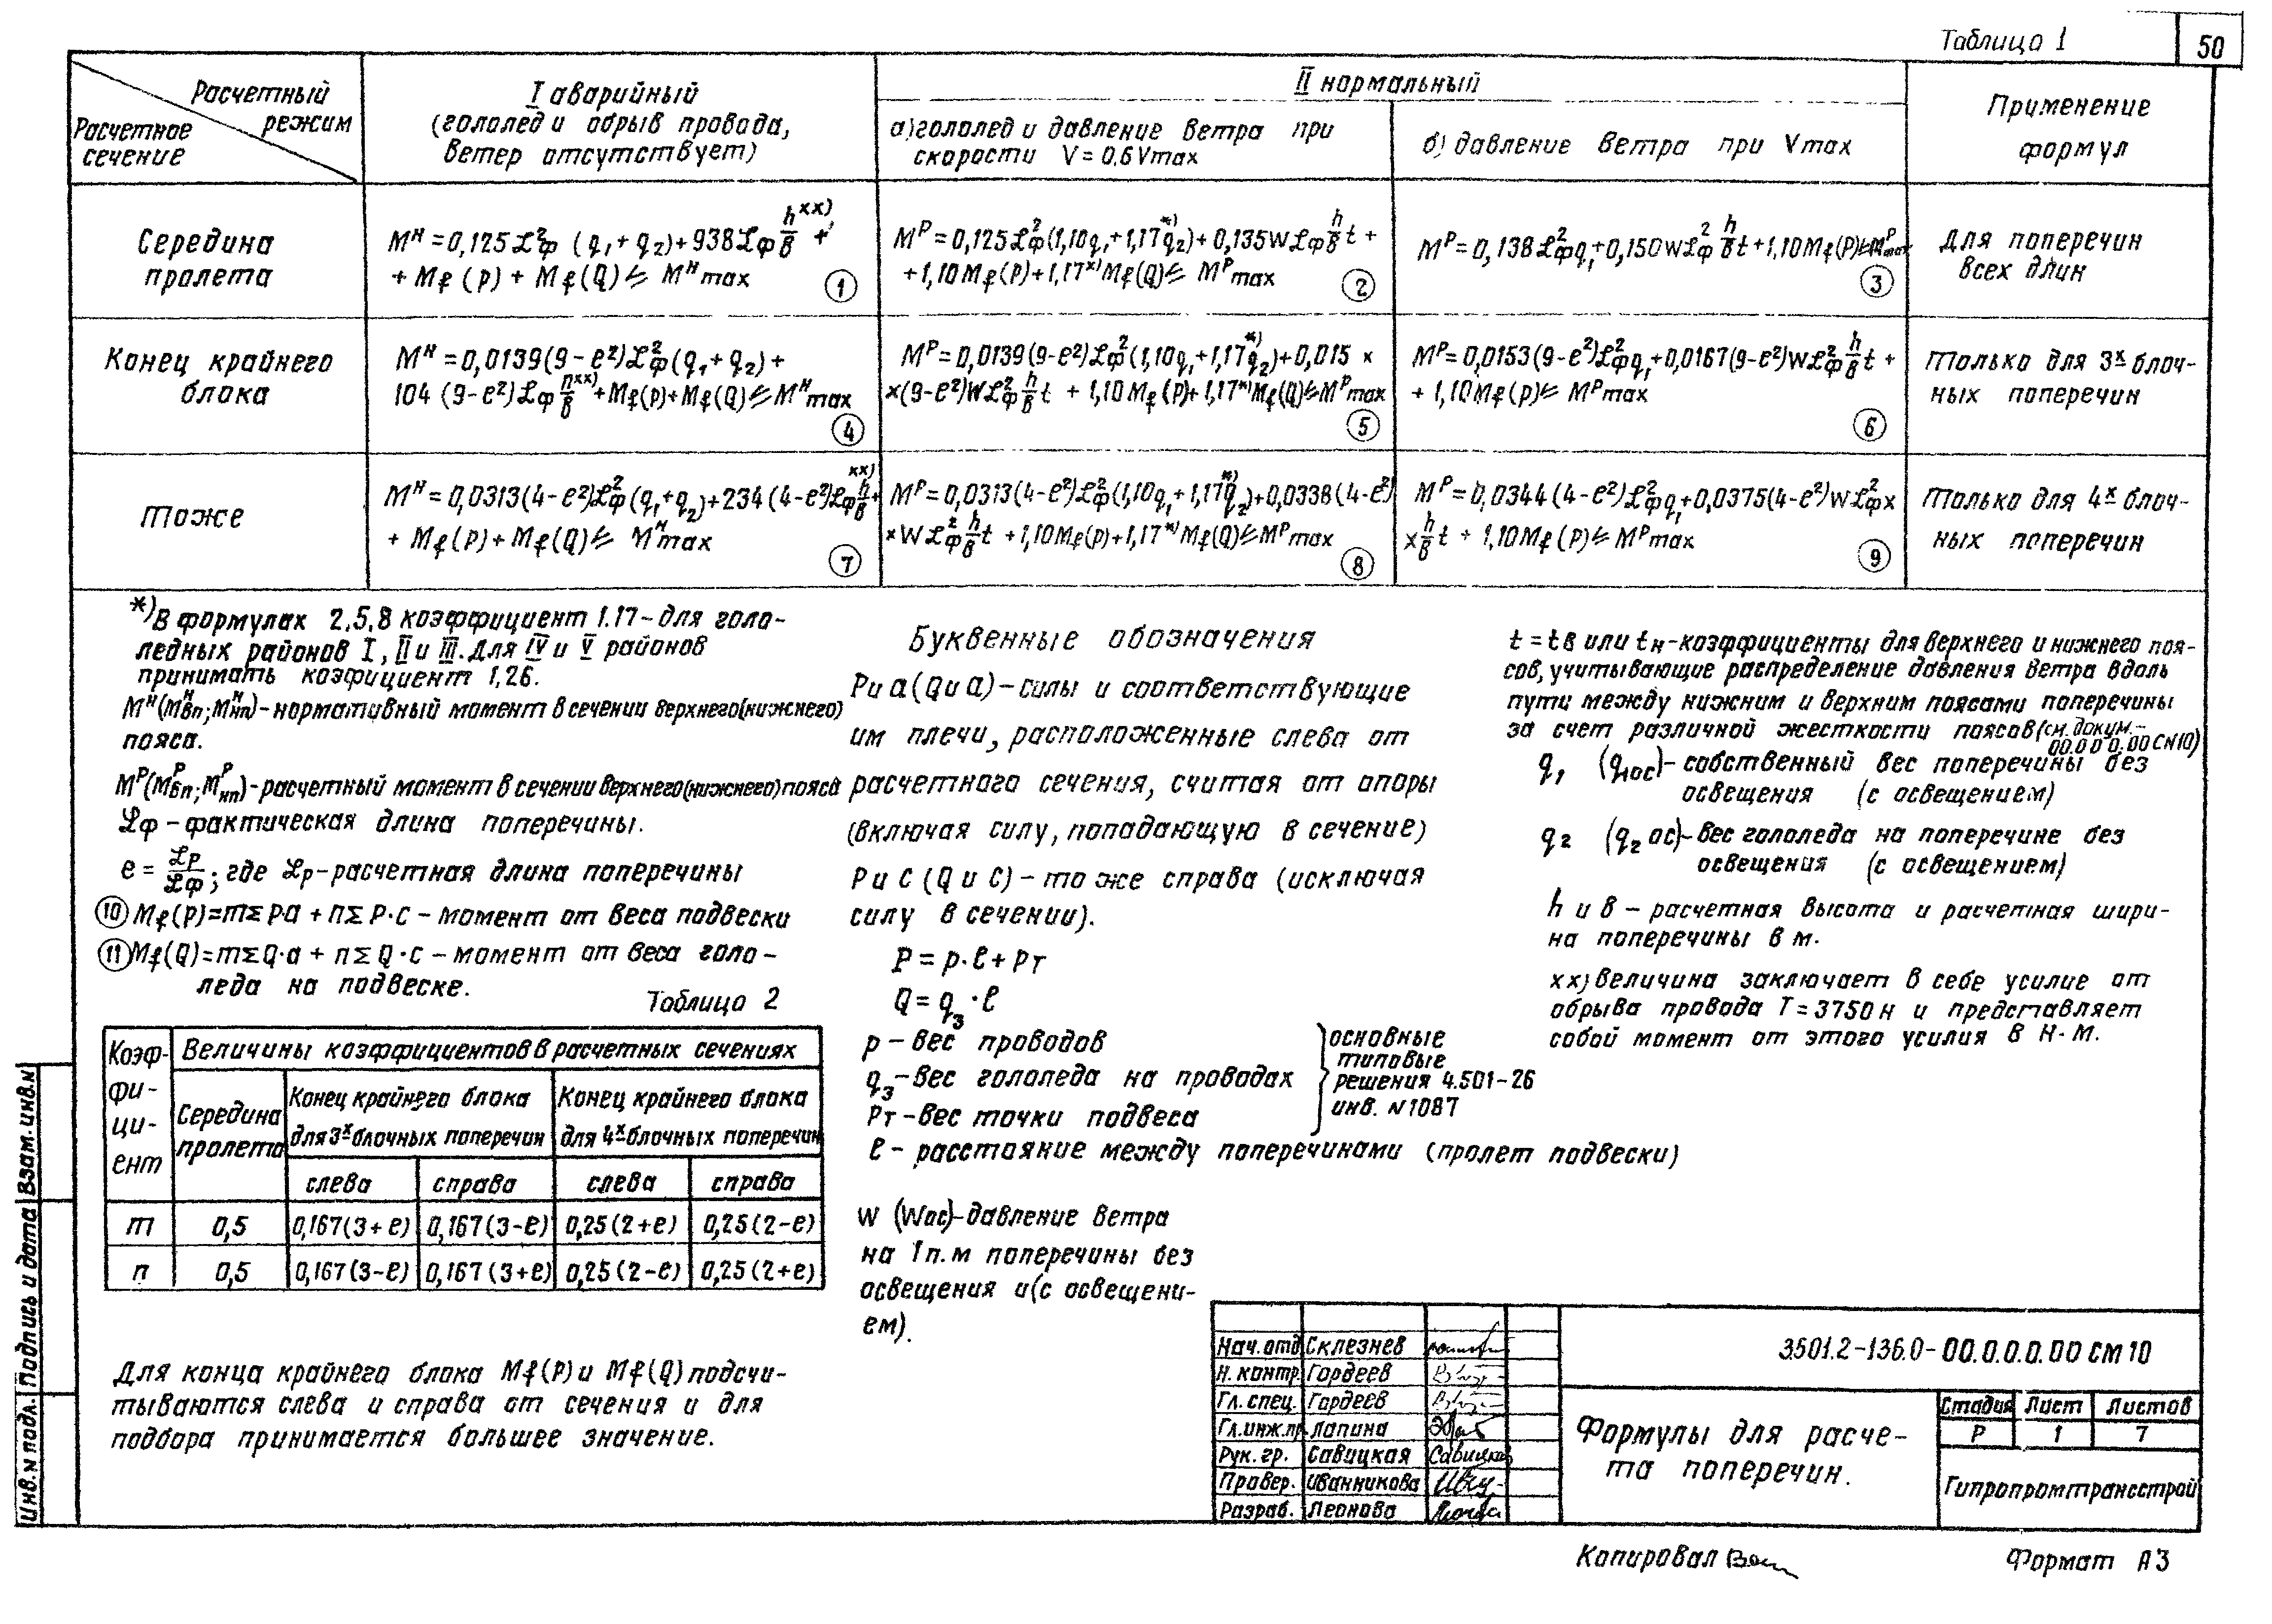 Таблица 1
50
Расчетный режим
Расчетное сечение
I аварийный
(гололед и обрыв провода,
ветер отсутствует)
II нормальный
а) гололед и давление ветра при
скорости V = 0,6 Vmax
б) давление ветра при Vmax
Применение
формул
Середина
пролета
Mᴴ = 0,125 ℒф² (q₁ + q₂) + 938 ℒф h/в ˣˣ⁾ +
+ Mf (p) + Mf (Q) ⩽ Mᴴmax
①
Mᴾ = 0,125 ℒф² (1,10q₁ + 1,17*⁾q₂) + 0,135 W ℒф² h/в t +
+ 1,10 Mf (p) + 1,17ˣ⁾ Mf (Q) ⩽ Mᴾmax
②
Mᴾ = 0,138 ℒф² q₁ + 0,150 W ℒф² h/в t + 1,10 Mf (P) ⩽ Mᴾmax
③
Для поперечин
всех длин
Конец крайнего
блока
Mᴴ = 0,0139 (9 - e²) ℒф² (q₁ + q₂) +
104 (9 - e²) ℒф h/в ˣˣ⁾ + Mf (p) + Mf (Q) ⩽ Mᴴmax
④
Mᴾ = 0,0139 (9 - e²) ℒф² (1,10q₁ + 1,17*⁾q₂) + 0,015 ×
× (9 - e²) W ℒф² h/в t + 1,10 Mf (p) + 1,17ˣ⁾ Mf (Q) ⩽ Mᴾmax
⑤
Mᴾ = 0,0153 (9 - e²) ℒф² q₁ + 0,0167 (9 - e²) W ℒф² h/в t +
+ 1,10 Mf (p) ⩽ Mᴾmax
⑥
Только для 3ˣ блоч-
ных поперечин
Тоже
Mᴴ = 0,0313 (4 - e²) ℒф² (q₁ + q₂) + 234 (4 - e²) ℒф h/в ˣˣ⁾ +
+ Mf (p) + Mf (Q) ⩽ Mᴴmax
⑦
Mᴾ = 0,0313 (4 - e²) ℒф² (1,10q₁ + 1,17*⁾q₂) + 0,0338 (4 - e²)
× W ℒф² h/в t + 1,10 Mf (p) + 1,17*⁾ Mf (Q) ⩽ Mᴾmax
⑧
Mᴾ = 0,0344 (4 - e²) ℒф² q₁ + 0,0375 (4 - e²) W ℒф² ×
× h/в t + 1,10 Mf (P) ⩽ Mᴾmax
⑨
Только для 4ˣ блоч-
ных поперечин
*) В формулах 2,5,8 коэффициент 1.17 - для голо-
ледных районов I, II и III. Для IV и V районов
принимать коэфициент 1,26.
Mᴴ (Mᴴвп; Mᴴнп) - нормативный момент в сечении верхнего (нижнего)
пояса.
Mᴾ (Mᴾвп; Mᴾнп) - расчетный момент в сечении верхнего (нижнего) пояса
ℒф - фактическая длина поперечины.
e = ℒр/ℒф ; где ℒр - расчетная длина поперечины
⑩ Mf (p) = mΣPa + nΣ P·c - момент от веса подвески
⑪ Mf (Q) = mΣQ·a + nΣ Q·c - момент от веса голо-
леда на подвеске.
Таблица 2
Коэф-
фи-
ци-
ент
Величины коэффициентов в расчетных сечениях
Середина
пролета
Конец крайнего блока
для 3ˣ блочных поперечин
Конец крайнего блока
для 4ˣ блочных поперечин
слева справа слева справа
m 0,5 0,167 (3+e) 0,167 (3-e) 0,25 (2+e) 0,25 (2-e)
n 0,5 0,167 (3-e) 0,167 (3+e) 0,25 (2-e) 0,25 (2+e)
Для конца крайнего блока Mf (P) и Mf (Q) подсчи-
тываются слева и справа от сечения и для
подбора принимается большее значение.
Буквенные обозначения
P и a (Q и a) - силы и соответствующие
им плечи, расположенные слева от
расчетного сечения, считая от опоры
(включая силу, попадающую в сечение)
P и C (Q и C) - то же справа (исключая
силу в сечении).
P = p·ℓ + Pт
Q = q₃·ℓ
p - вес проводов
q₃ - вес гололеда на проводах
Pт - вес точки подвеса
основные
типовые
решения 4.501-26
инв. N 1087
ℓ - расстояние между поперечинами (пролет подвески)
W (Wос) - давление ветра
на 1 п.м поперечины без
освещения и (с освещени-
ем).
t = tв или tн - коэффициенты для верхнего и нижнего поя-
сов, учитывающие распределение давления ветра вдоль
пути между нижним и верхним поясами поперечины
за счет различной жесткости поясов (см. доким.-
00.0.0.0.00 СМ10)
q₁ (q₁ос) - собственный вес поперечины без
освещения (с освещением)
q₂ (q₂ос) - вес гололеда на поперечине без
освещения (с освещением)
h и в - расчетная высота и расчетная шири-
на поперечины в м.
xx) величина заключает в себе усилие от
обрыва провода T = 3750 н и представляет
собой момент от этого усилия в Н·М.
Взам. инв. N
Подпись и дата
Инв. N подл.
Нач. отд. Склезнев
Н. контр. Гордеев
Гл. спец. Гордеев
Гл. инж. пр. Лапина
Рук. гр. Савицкая Савицкая
Провер. Иванникова
Разраб. Леонова
3.501.2-136.0-00.0.0.0.00 СМ 10
Формулы для расче-
та поперечин.
Стадия Лист Листов
Р 1 7
Гипропромтрансстрой
Копировал
Формат А3